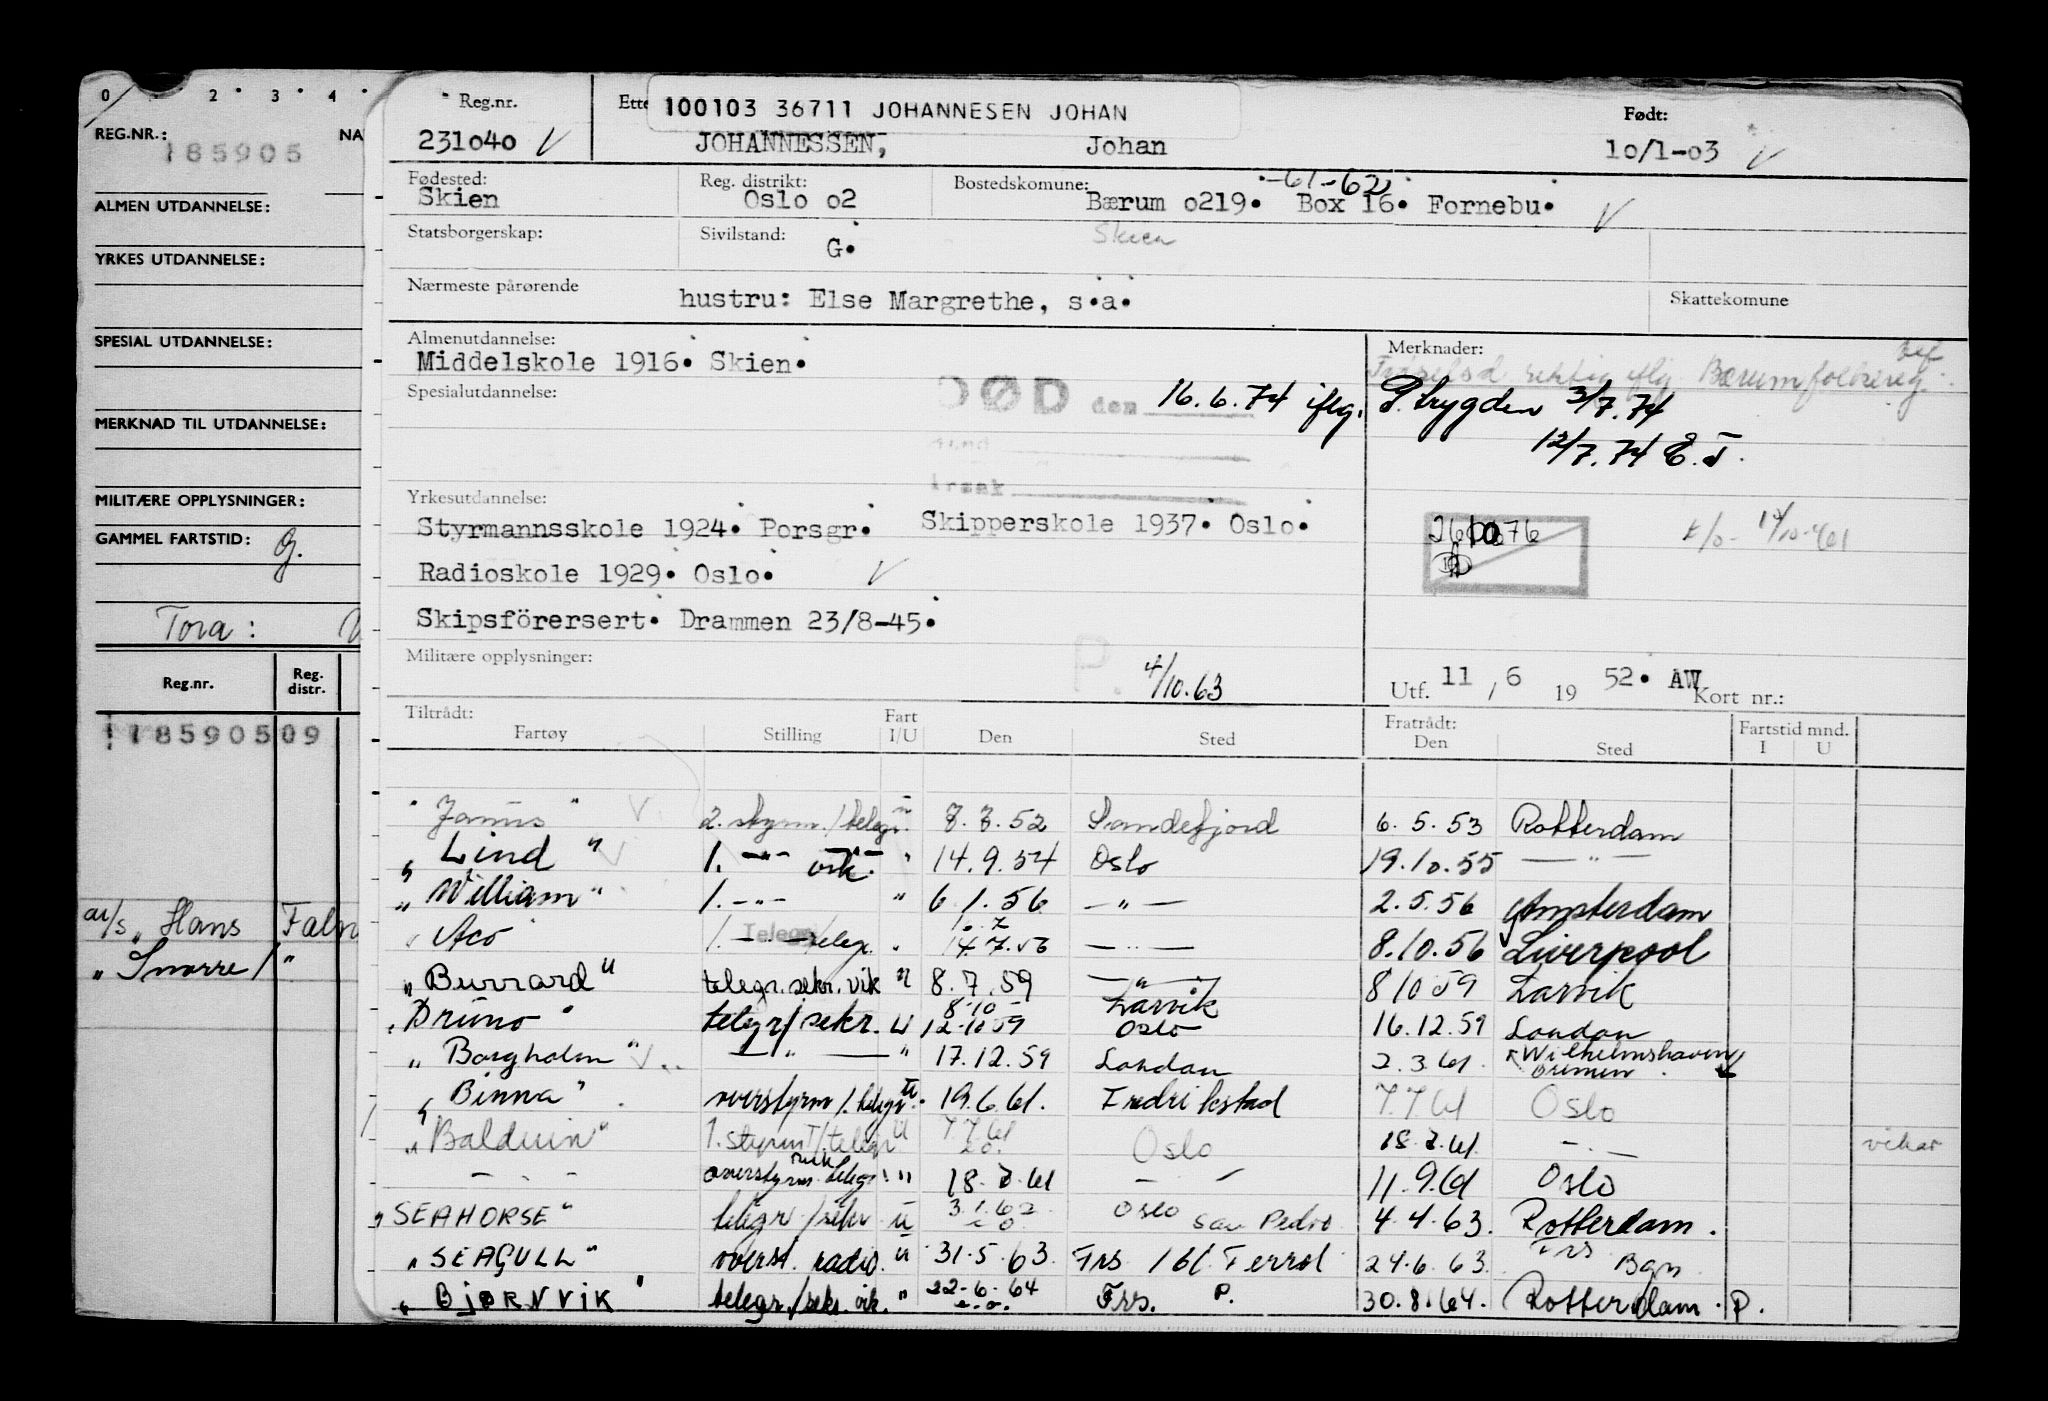 0 2 • 3 • 4 •
REG.NR.: NA
185905
ALMEN UTDANNELSE:
YRKES UTDANNELSE:
SPESIAL UTDANNELSE:
MERKNAD TIL UTDANNELSE:
MILITÆRE OPPLYSNINGER:
GAMMEL FARTSTID: G.
Tora:
Reg.nr. Reg. distr.
118590509
"Hans Faln
"Snorre / "
Reg.nr. Ette 100103 36711 JOHANNESEN JOHAN Født:
231040 V JOHANNESSEN, Johan 10/1-03 V
Fødested: Reg. distrikt: Bostedskomune: -61-62
Skien Oslo 02 Bærum 0219. Box 16. Fornebu. V
Statsborgerskap: Sivilstand: Skien
G.
Nærmeste pårørende Skattekomune
hustru: Else Margrethe, s.a.
Almenutdannelse: Merknader:
Middelskole 1916. Skien.
Bærum folkereg.
Spesialutdannelse: DØD den 16.6.74 iflg. P.trygden 3/7.74
12/7.74 E.T.
Yrkesutdannelse:
Styrmannsskole 1924. Porsgr. Skipperskole 1937. Oslo.
Radioskole 1929. Oslo. V
Skipsförersert. Drammen 23/8-45.
Militære opplysninger: P. 4/10.63
Utf. 11 / 6 19 52. AW Kort nr.:
Tiltrådt: Fart Fratrådt: Fartstid mnd.
Fartøy Stilling I/U Den Sted Den Sted I U
"Janus" V 2. styrm./telegr. 8.3.52 Sandefjord 6.5.53 Rotterdam
"Lind" V 1. -"- vik. " 14.9.54 Oslo 19.10.55 -"-
"William" 1. -"- " 6.1.56 -"- 2.5.56 Amsterdam
" Aco 1. -"- telegr. " 14.7.56 -"- 8.10.56 Liverpool
"Burrard" telegr.sekr.vik " 8.7.59 -"- 8 10 59 Larvik
8-10 Larvik
"Bruno" telegr/sekr. U 12-10 59 Oslo 16.12.59 London
"Borgholm" V -"- " 17.12.59 London 2.3.61 Wilhelmshaven
"Binna" overstyrm/.telegr. U 19.6.61. Fredrikstad 7.7.61 Oslo
"Balduin" 1. styrm/telegr U 7.7.61 Oslo 18.7.61 - vikar
- " - overstyrm telegr. " 18.7.61 - " 11.9.61 Oslo
"SEAHORSE" telegr./sekr U 3.1.62 Oslo San Pedro 4.4.63. Rotterdam.
"SEAGULL" overst. radio. U 31.5.63. Frs / bl. Ferrol 24.6.63. Frs Bgn
"BJØRNVIK" telegr./sekr. vik. " 22-6-64 Frs. P. 30.8.64. Rotterdam. P.